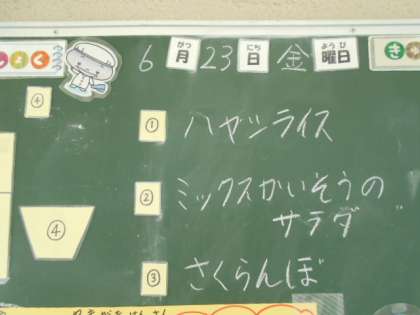 6月23日金曜日
がつ にち ようび
④
① ハヤシライス
② ミックスかいそうの
サラダ
④
③ さくらんぼ